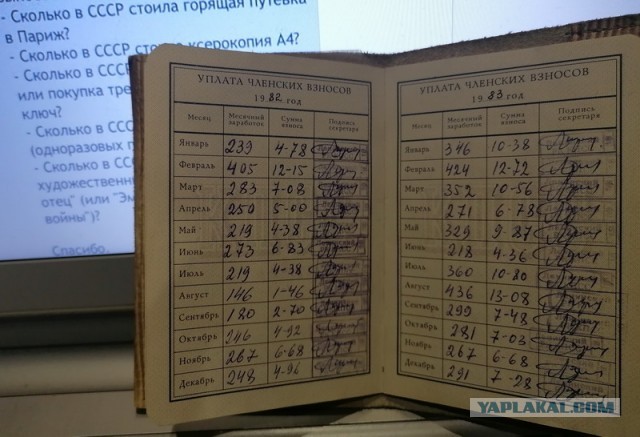 - Сколько в СССР стоила горящая путевка
в Париж?
- Сколько в СССР ксерокопия А4?
- Сколько в СССР
или покупка
ключ?
- Сколько в СССР
(одноразовых
- Сколько в
художественн
отец" (или
войны")?
Спасибо.
УПЛАТА ЧЛЕНСКИХ ВЗНОСОВ
1982 год
Месяц Месячный заработок Сумма взноса Подпись секретаря
Январь 239 4-78
Февраль 405 12-15
Март 283 7-08
Апрель 250 5-00
Май 219 4-38
Июнь 273 6-83
Июль 219 4-38
Август 146 1-46
Сентябрь 180 2-70
Октябрь 246 4-92
Ноябрь 267 6-68
Декабрь 248 4-96
УПЛАТА ЧЛЕНСКИХ ВЗНОСОВ
1983 год
Месяц Месячный заработок Сумма взноса Подпись секретаря
Январь 346 10-38
Февраль 424 12-72
Март 352 10-56
Апрель 271 6-78
Май 329 9-87
Июнь 218 4-36
Июль 360 10-80
Август 436 13-08
Сентябрь 299 7-48
Октябрь 281 7-03
Ноябрь 267 6-68
Декабрь 291 7-28
YAPLAKAL.COM